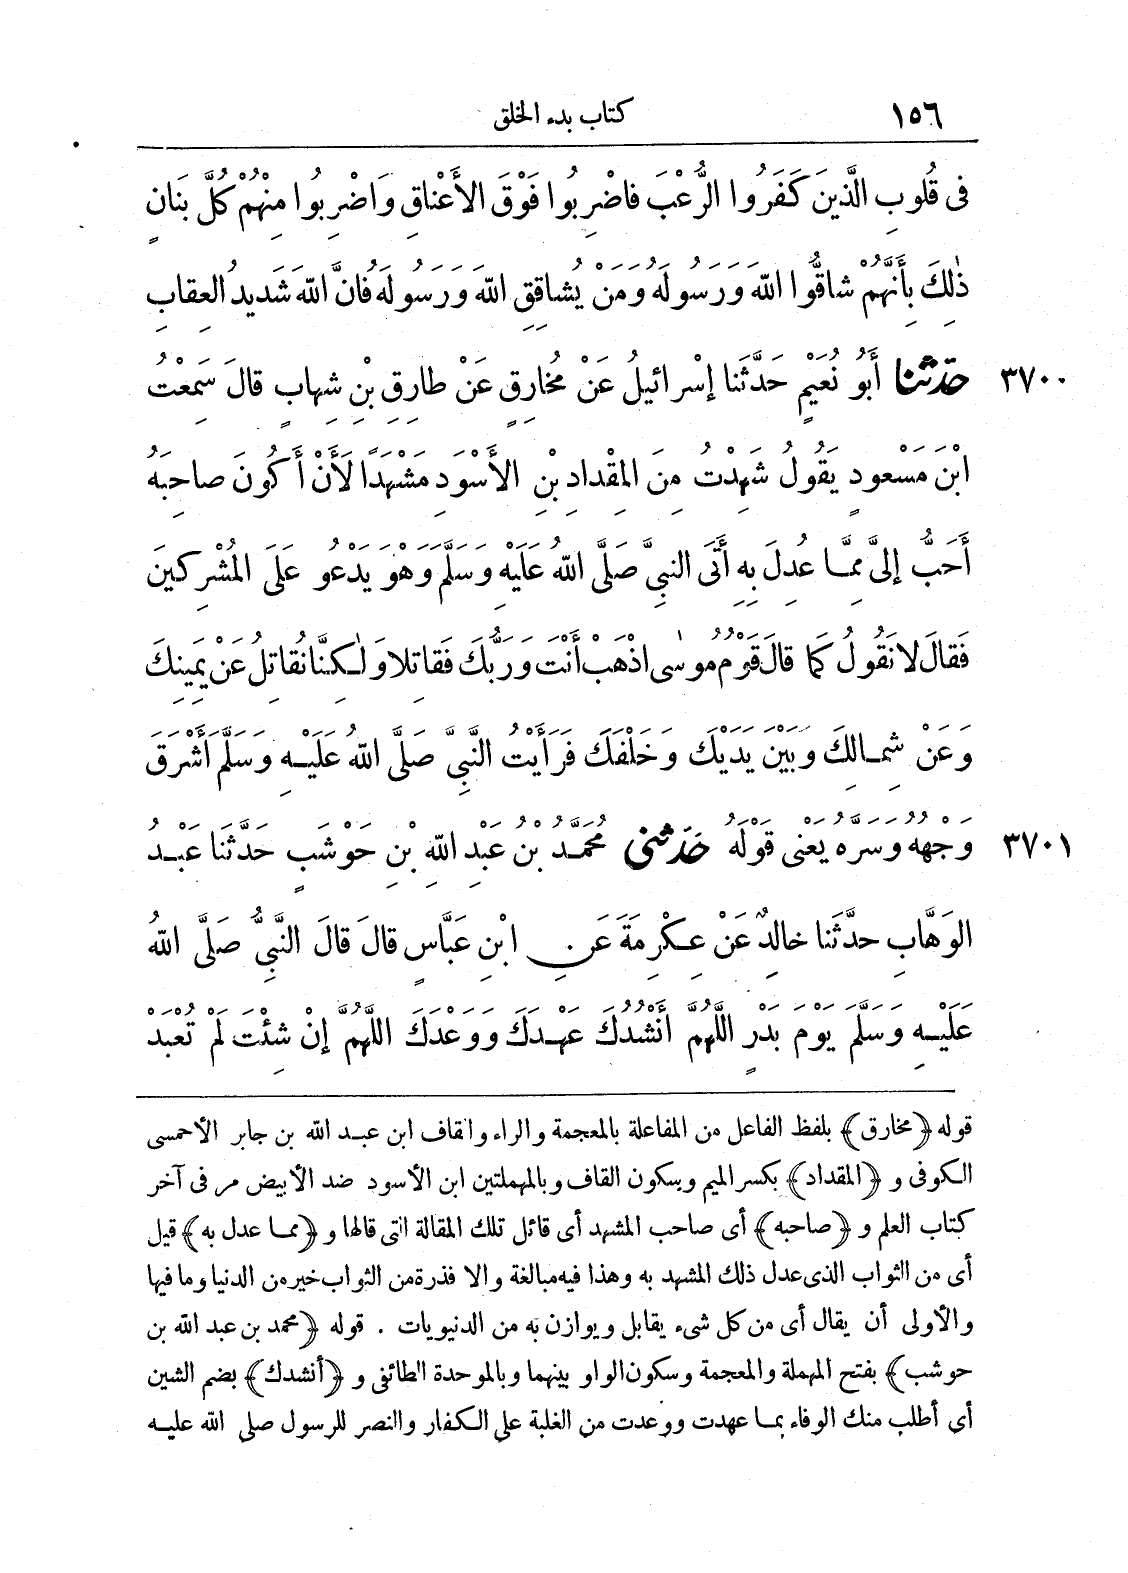 ١٥٦ كتاب بدء الخلق
فى قُلُوبِ الَّذِينَ كَفَرُوا الرُّعْبَ فاضْرِبُوا فَوْقَ الأَعْناقِ وَاضْرِبُوا مِنْهُمْ كُلَّ بَنَانٍ
ذٰلِكَ بِأَنَّهُمْ شاقُّوا اللّهَ وَرَسُولَهُ وَمَنْ يُشاقِقِ اللّهَ وَرَسُولَهُ فَانَّ اللّهَ شَدِيدُ العِقابِ
٣٧٠٠ حَدَّثَنا أَبُو نُعَيْمٍ حَدَّثَنا إسْرائيلُ عَنْ مُخارِقٍ عَنْ طارِقِ بْنِ شِهابٍ قالَ سَمِعْتُ
ابْنَ مَسْعودٍ يَقُولُ شَهِدْتُ مِنَ المِقْدادِ بْنِ الأَسْوَدِ مَشْهَدًا لَأَنْ أَكُونَ صاحِبَهُ
أَحَبُّ إلىَّ مِمَّا عُدِلَ بِهِ أَتَى النبىَّ صَلَّى اللّهُ عَلَيْهِ وَسَلَّمَ وَهْوَ يَدْعُو عَلَى المُشْرِكِينَ
فَقالَ لا نَقُولُ كَمَا قالَ قَوْمُ موسٰى اذْهَبْ أَنْتَ وَرَبُّكَ فَقاتِلا وَلٰكِنَّا نُقاتِلُ عَنْ يَمِينِكَ
وَعَنْ شِمالِكَ وَبَيْنَ يَدَيْكَ وَخَلْفَكَ فَرَأَيْتُ النَّبِىَّ صَلَّى اللّهُ عَلَيْهِ وَسَلَّمَ أَشْرَقَ
٣٧٠١ وَجْهُهُ وَسَرَّهُ يَعْنى قَوْلَهُ حَدَّثَنى مُحَمَّدُ بْنُ عَبْدِ اللّهِ بْنِ حَوْشَبٍ حَدَّثَنَا عَبْدُ
الوَهَّابِ حدَّثَنا خالِدٌ عَنْ عِكْرِمَةَ عَنِ ابْنِ عَبَّاسٍ قالَ قالَ النَّبِىُّ صَلَّى اللّهُ
عَلَيْهِ وَسَلَّمَ يَوْمَ بَدْرٍ اللَّهُمَّ أَنْشُدُكَ عَهْدَكَ وَوَعْدَكَ اللَّهُمَّ إِنْ شِئْتَ لَمْ تُعْبَدْ
قوله ﴿مخارق﴾ بلفظ الفاعل من المفاعلة بالمعجمة والراء والقاف ابن عبد الله بن جابر الأحمسى
الكوفى و﴿المقداد﴾ بكسر الميم وبسكون القاف وبالمهملتين ابن الأسود ضد الأبيض مر فى آخر
كتاب العلم و﴿صاحبه﴾ أى صاحب المشهد أى قائل تلك المقالة التى قالها و﴿مما عدل به﴾ قيل
أى من الثواب الذى عدل ذلك المشهد به وهذا فيه مبالغة والا فذرة من الثواب خير من الدنيا وما فيها
والأولى أن يقال أى من كل شىء يقابل ويوازن به من الدنيويات . قوله ﴿محمد بن عبد الله بن
حوشب﴾ بفتح المهملة والمعجمة وسكون الواو بينهما وبالموحدة الطائفى و﴿أنشدك﴾ بضم الشين
أى أطلب منك الوفاء بما عهدت ووعدت من الغلبة على الكفار والنصر للرسول صلى الله عليه